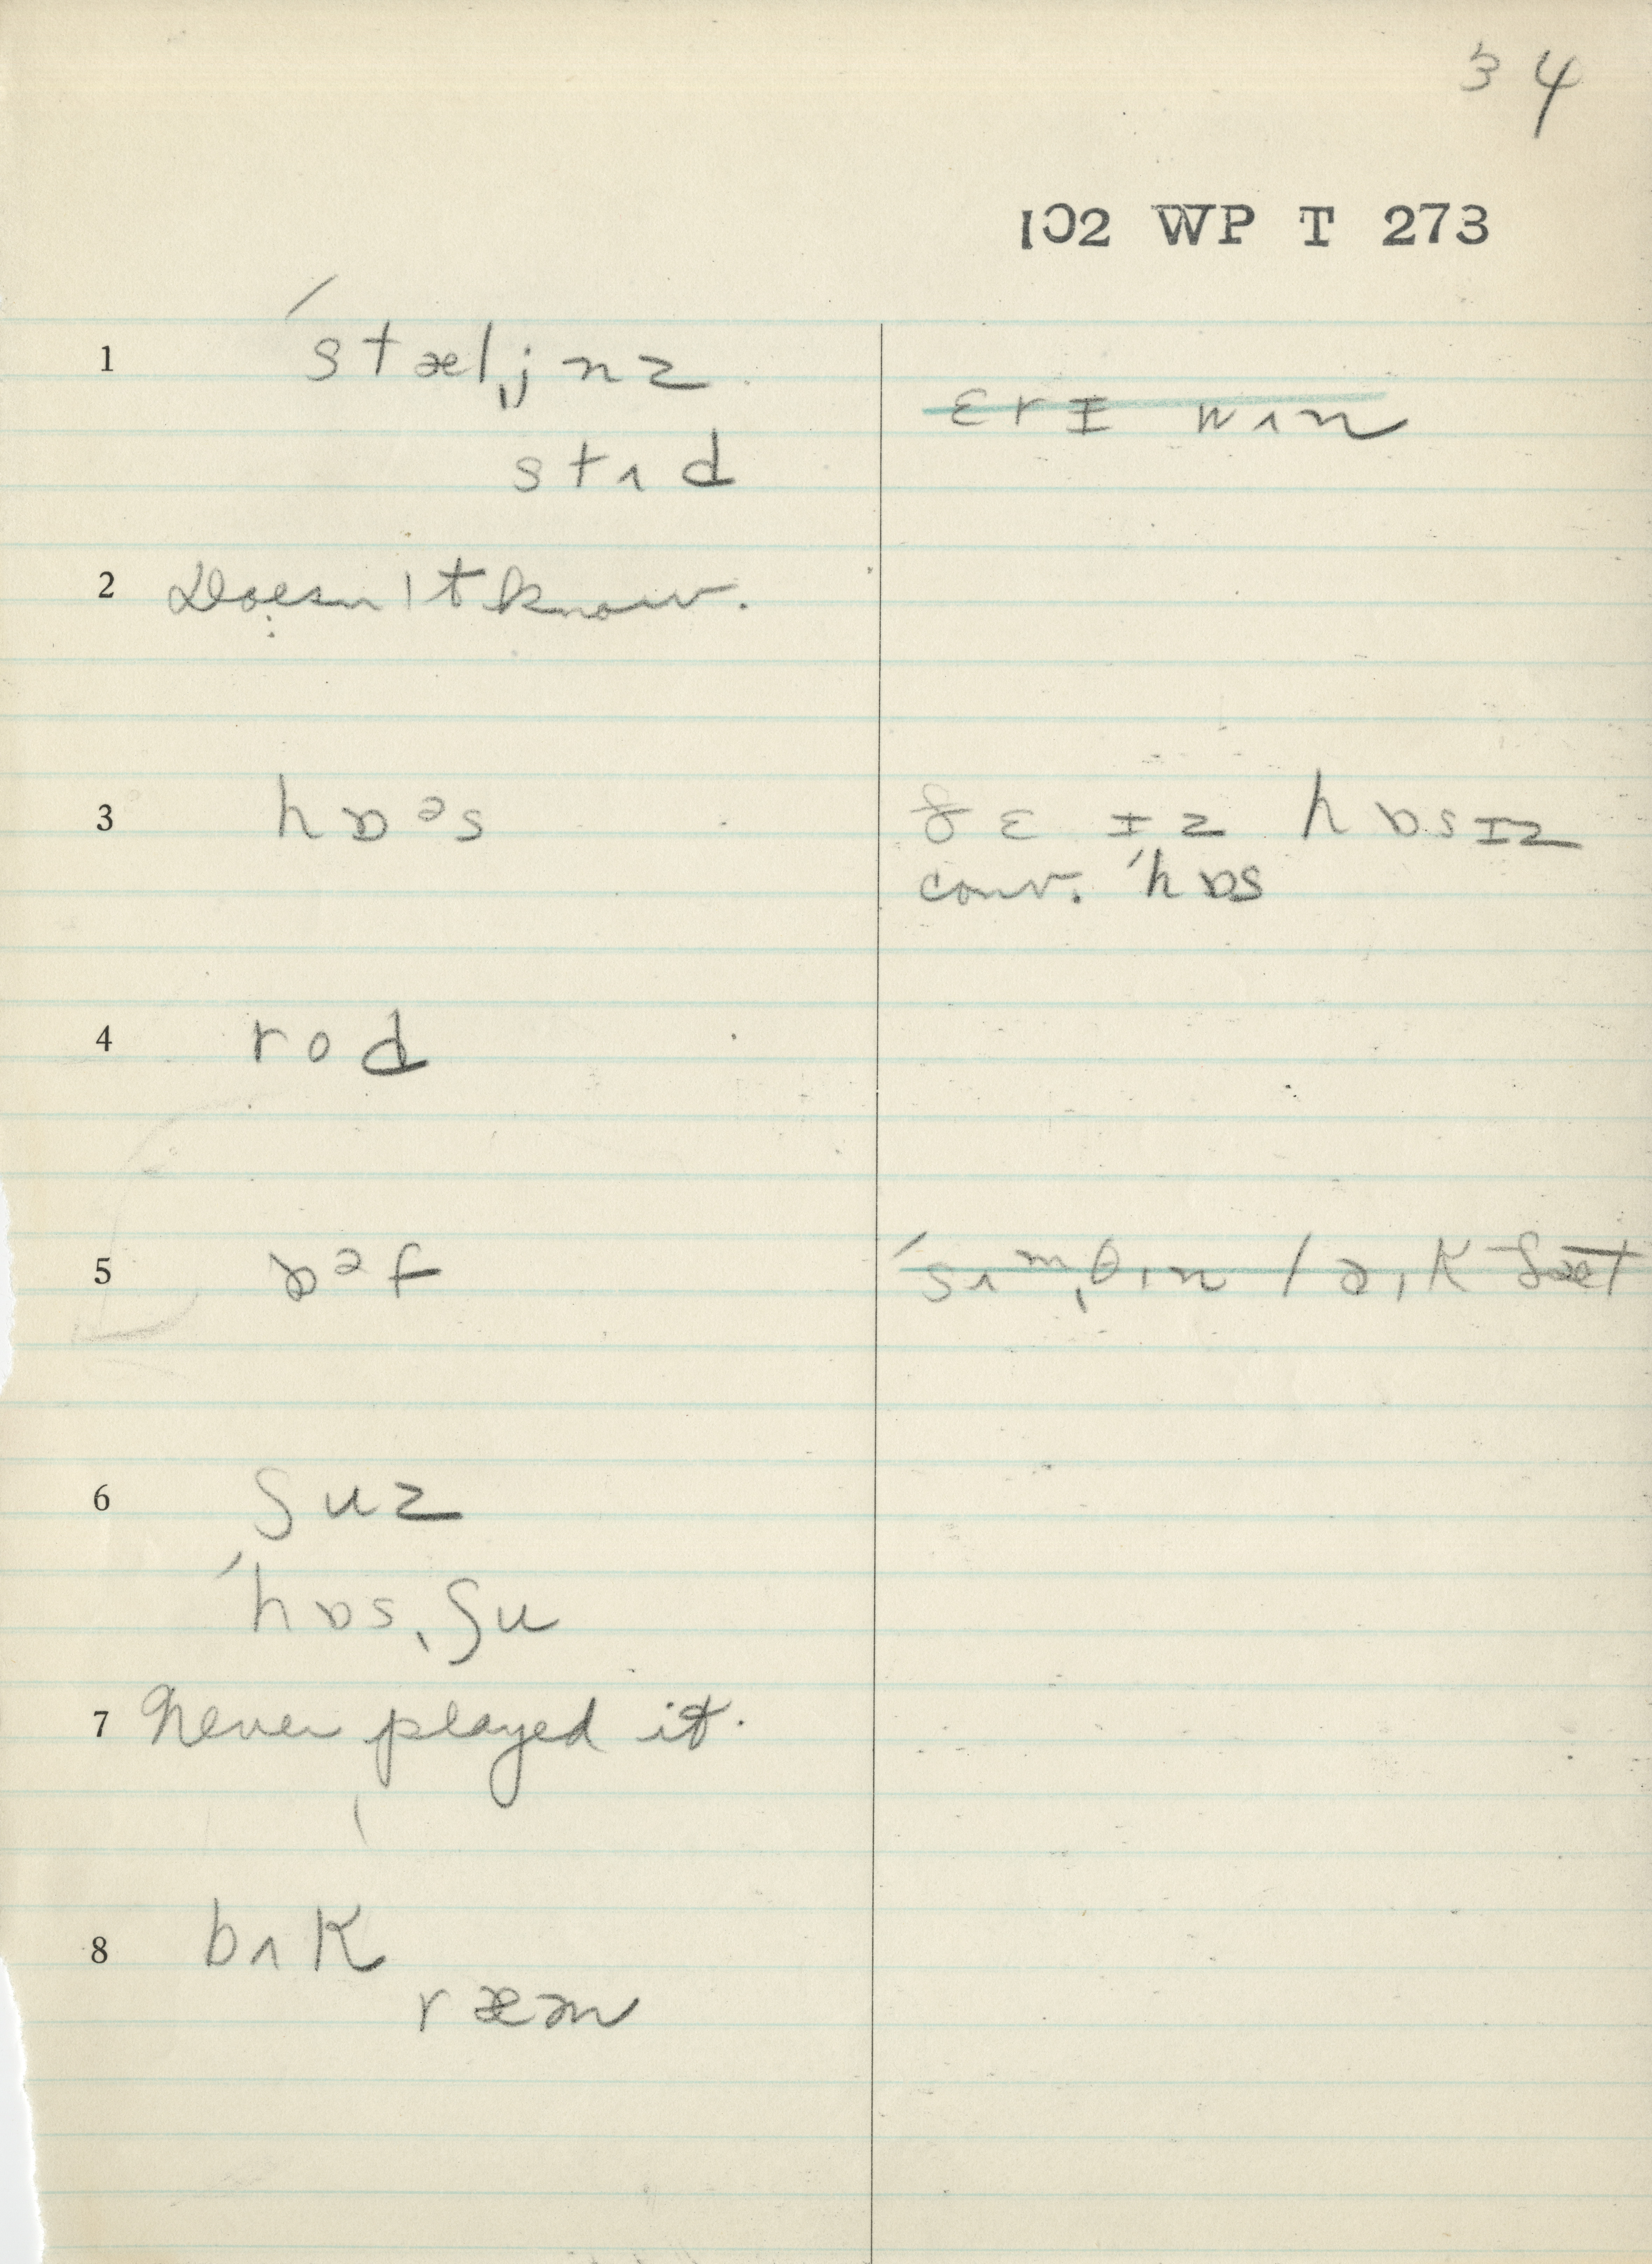 34
102 WP T 273
1 ˈstælˌjnz
ɛrɪ wʌn
stʌd
2 Doesn't know.
3 hɒᵊs
ðɛ ɪz hɒsɪz
conv. ˈhɒs
4 rod
5 ɒᵊf
ˈsʌᵐˌθɪn laɪk ðæt
6 ʃuz
ˈhɒsˌʃu
7 Never played it.
8 bʌk
ræm